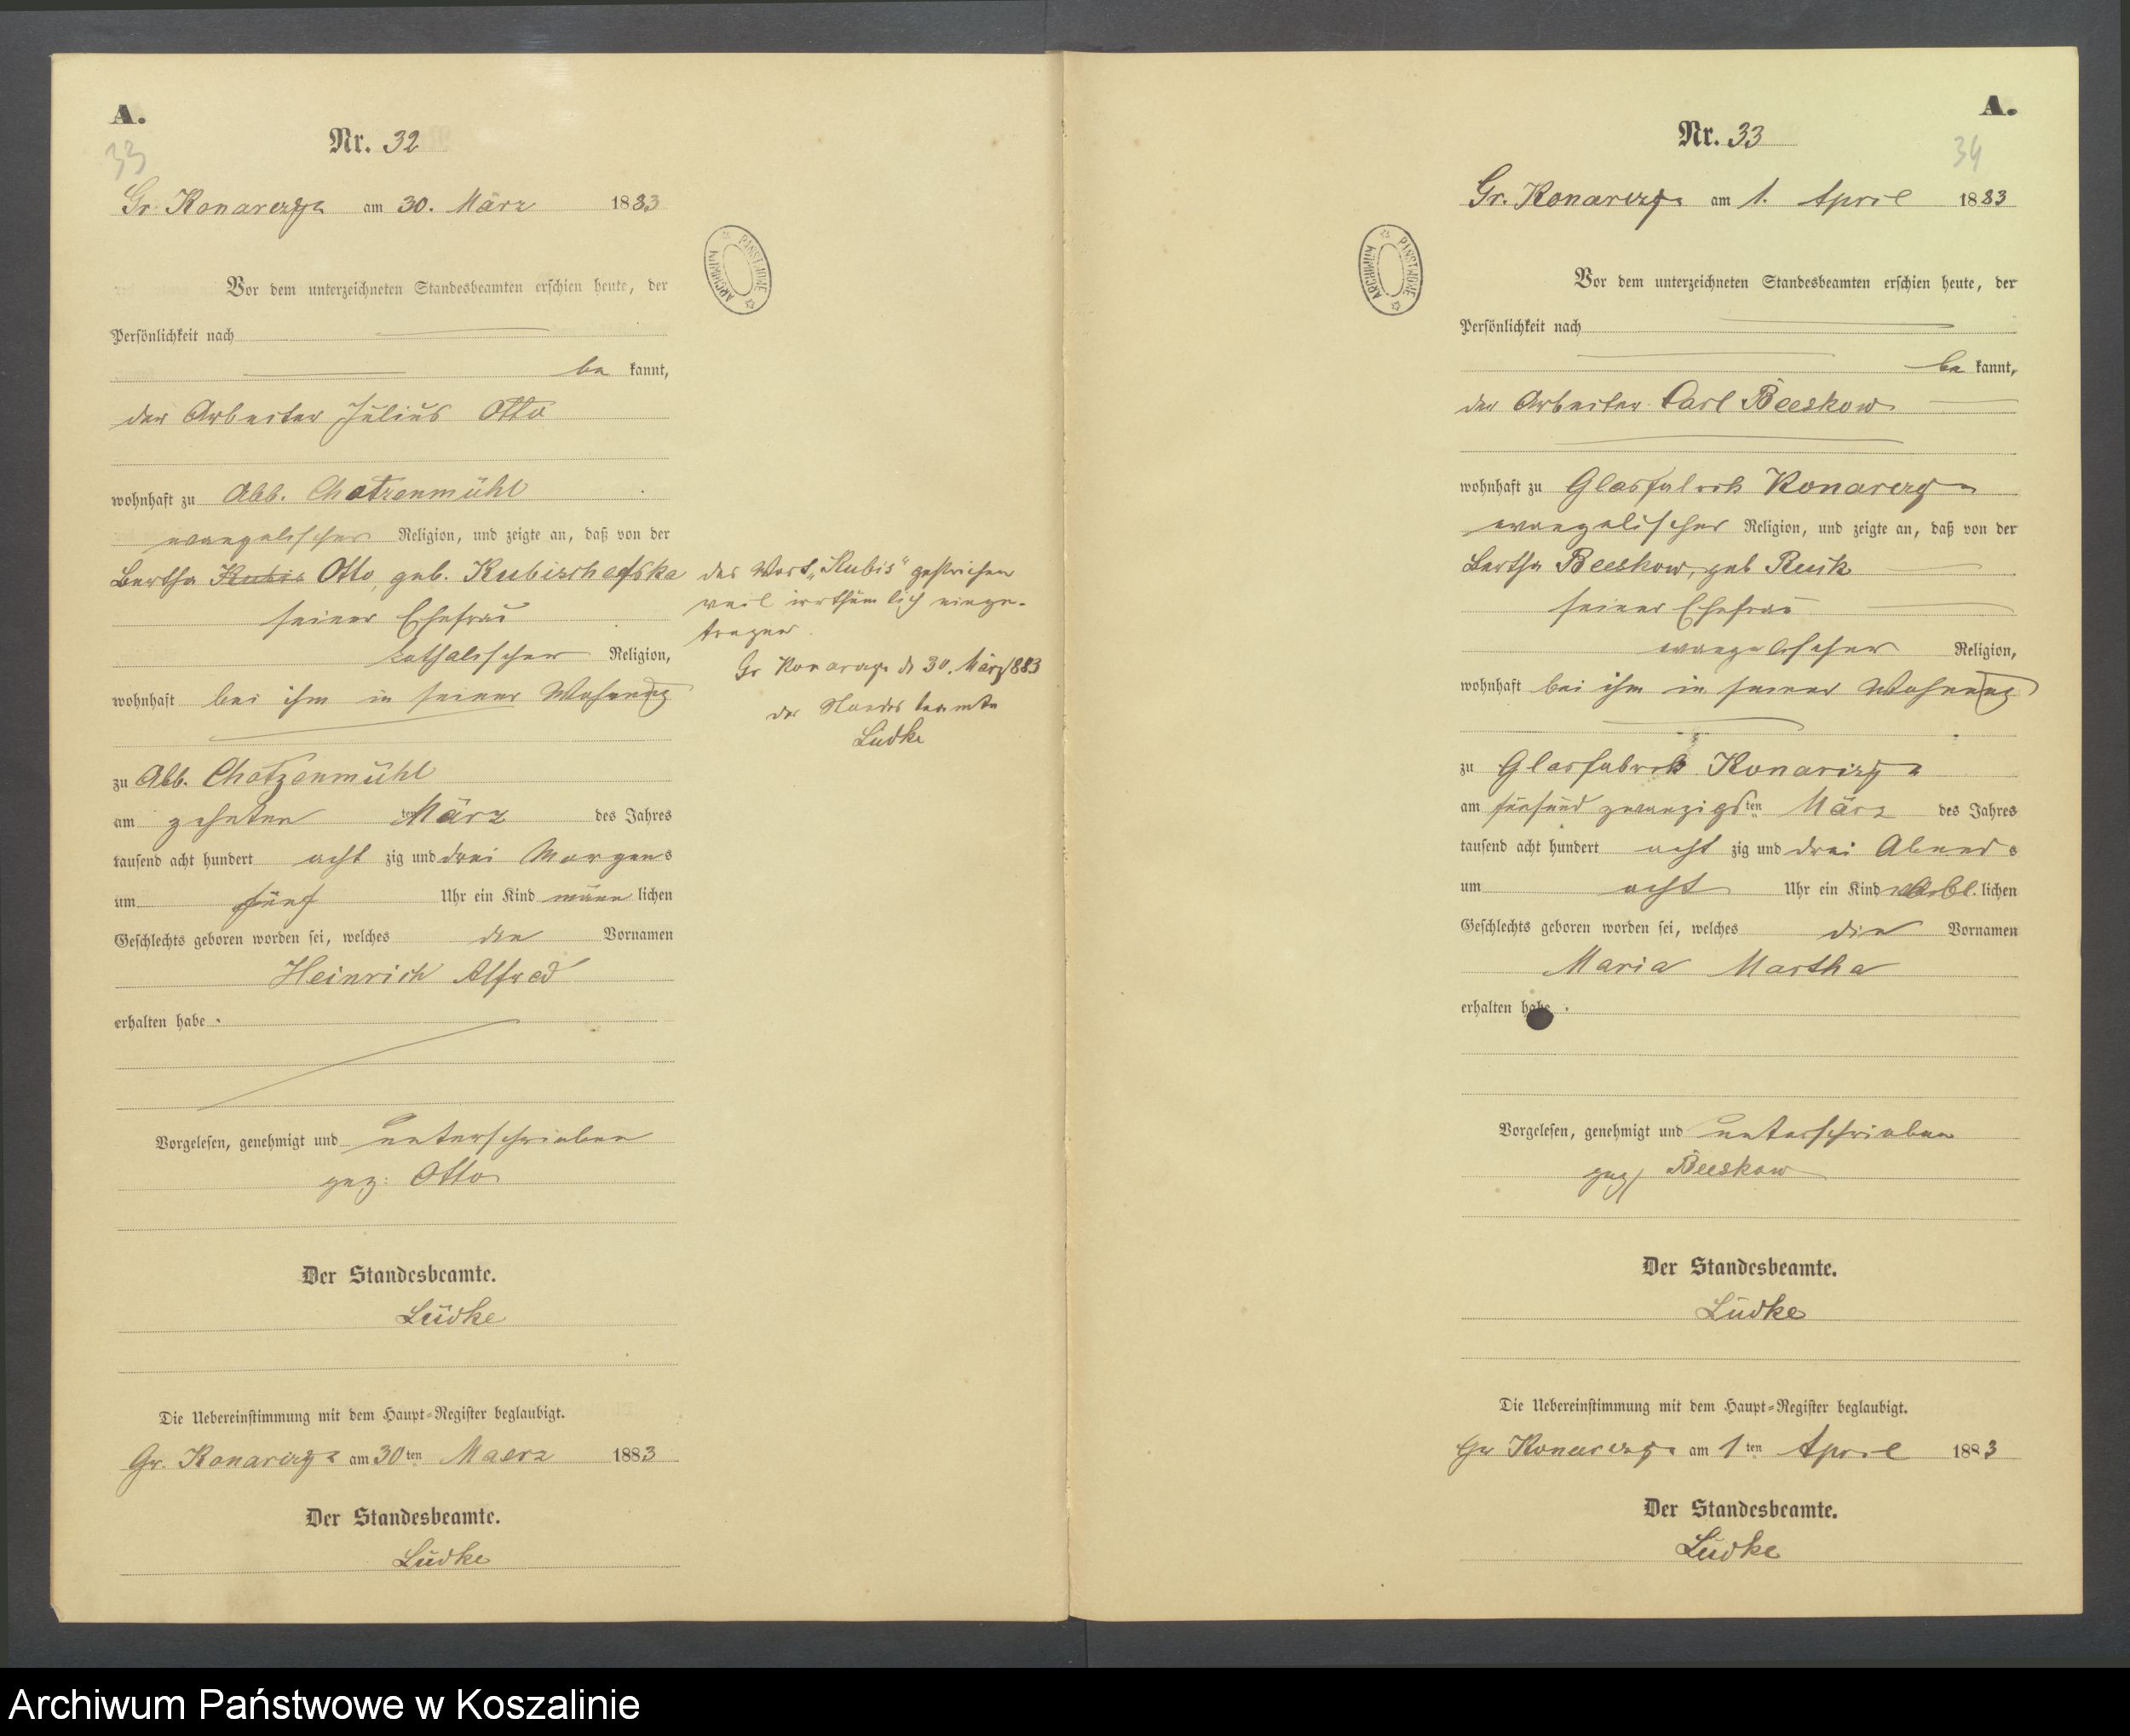 A.
33
Nr. 32
Gr. Konarczyn am 30. März 1883
Vor dem unterzeichneten Standesbeamten erschien heute, der
Persönlichkeit nach
be kannt,
der Arbeiter Julius Otto
wohnhaft zu Abb. Chotzenmühl
evangelischer Religion, und zeigte an, daß von der
Bertha Kubis Otto, geb. Kubischefska
seiner Ehefrau
katholischer Religion,
wohnhaft bei ihm in seiner Wohnung
zu Abb. Chotzenmühl
am zehnten März des Jahres
tausend acht hundert acht zig und drei Morgens
um fünf Uhr ein Kind männ lichen
Geschlechts geboren worden sei, welches die Vornamen
Heinrich Alfred
erhalten habe.
Vorgelesen, genehmigt und unterschrieben
gez: Otto
Der Standesbeamte.
Lüdke
Die Uebereinstimmung mit dem Haupt-Register beglaubigt.
Gr. Konarczyn am 30ten Maerz 1883
Der Standesbeamte.
Lüdke
das Wort „Kubis" gestrichen
weil irrthümlich einge-
tragen.
Gr Konarczyn d 30. März 1883
der Standesbeamte
Lüdke
ARCHIWUM PAŃSTWOWE
A.
34
Nr. 33
Gr. Konarczyn am 1. April 1883
ARCHIWUM PAŃSTWOWE
Vor dem unterzeichneten Standesbeamten erschien heute, der
Persönlichkeit nach
be kannt,
der Arbeiter Carl Beeskow
wohnhaft zu Glasfabrik Konarczyn
evangelischer Religion, und zeigte an, daß von der
Bertha Beeskow, geb
seiner Ehefrau
evangelischer Religion,
wohnhaft bei ihm in seiner Wohnung
zu Glasfabrik Konarczyn
am fünfundzwanzigsten März des Jahres
tausend acht hundert acht zig und drei Abends
um acht Uhr ein Kind weibl. lichen
Geschlechts geboren worden sei, welches die Vornamen
Maria Martha
erhalten habe.
Vorgelesen, genehmigt und unterschrieben
gez/ Beeskow
Der Standesbeamte.
Lüdke
Die Uebereinstimmung mit dem Haupt-Register beglaubigt.
Gr Konarczyn am 1ten April 1883
Der Standesbeamte.
Lüdke
Archiwum Państwowe w Koszalinie